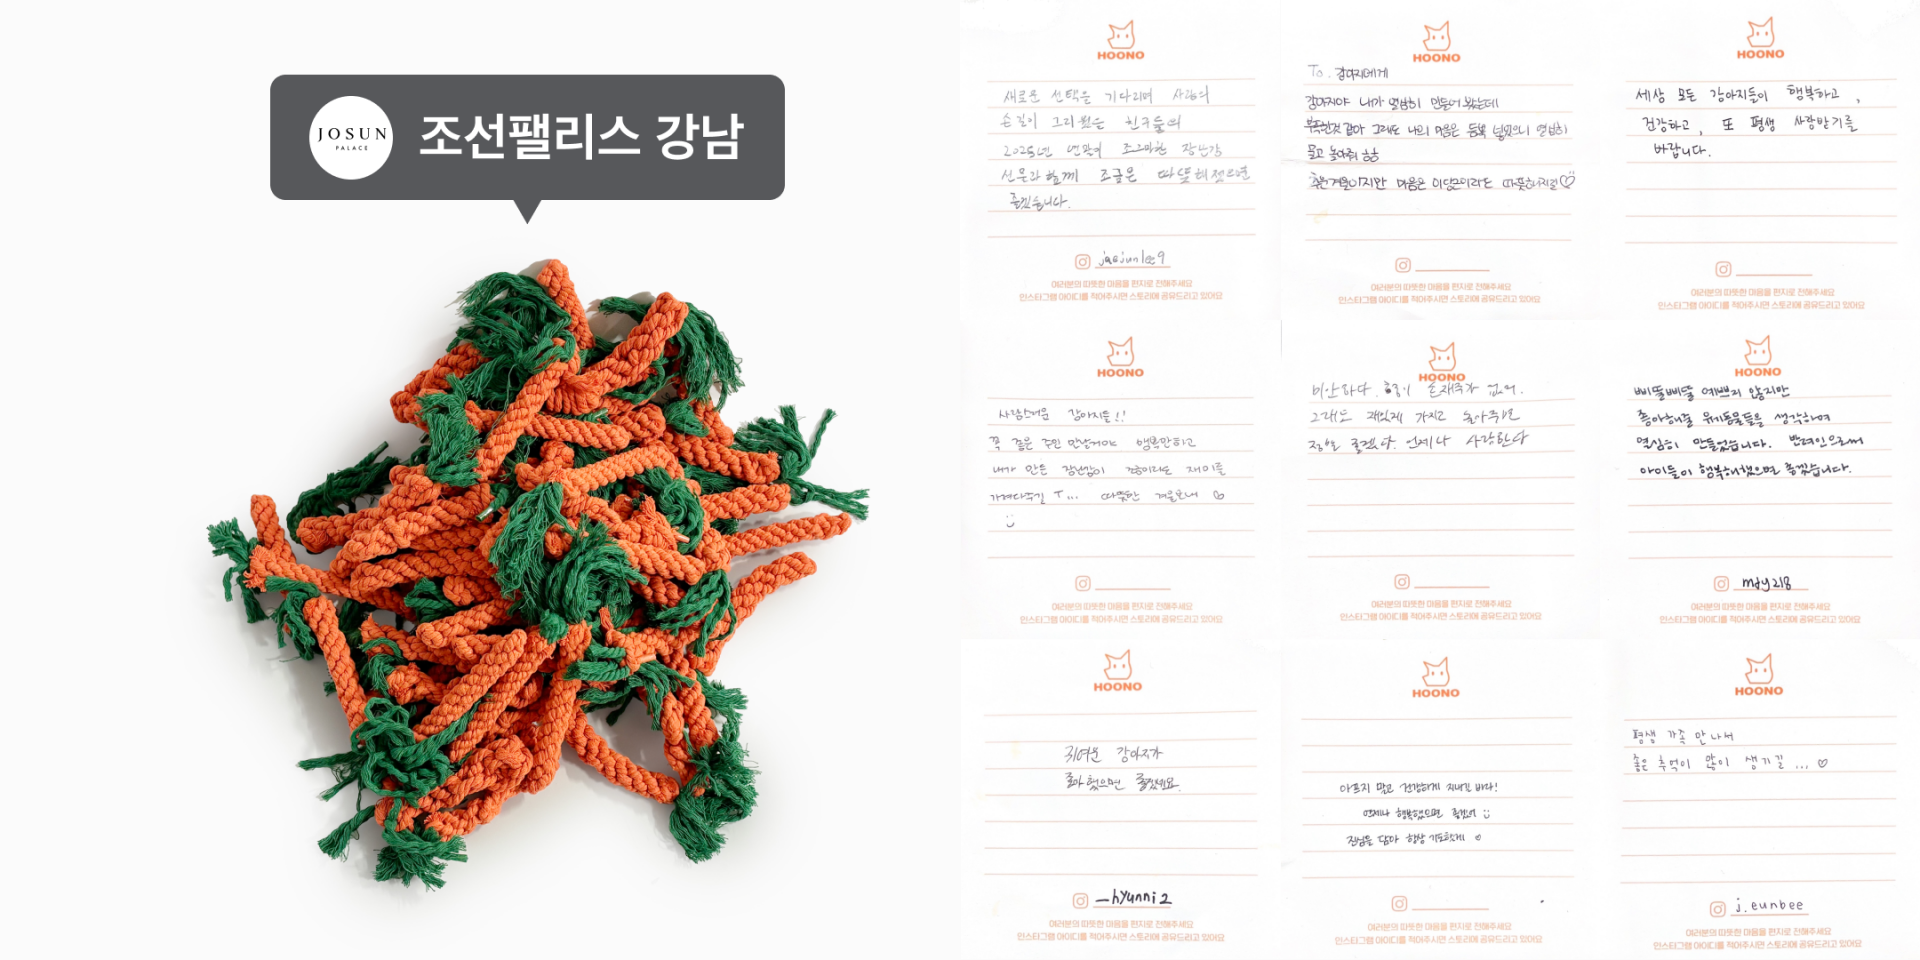 JOSUN
PALACE
조선팰리스 강남
HOONO
새로운 선택을 기다리며 사람의
손길이 그리웠을 친구들의
2025년 연말이 조그마한 장난감
선물과 함께 조금은 따뜻해졌으면
좋겠습니다.
jaejunlee9
여러분의 따뜻한 마음을 편지로 전해주세요
인스타그램 아이디를 적어주시면 스토리에 공유드리고 있어요
HOONO
To. 강아지에게
강아지야 내가 열심히 만들어봤는데
부족한것 같아 그래도 나의 마음은 듬뿍 넣었으니 열심히
물고 놀아줘
추운겨울이지만 마음은 이랑으로라도 따뜻해지길♡
여러분의 따뜻한 마음을 편지로 전해주세요
인스타그램 아이디를 적어주시면 스토리에 공유드리고 있어요
HOONO
세상 모든 강아지들이 행복하고,
건강하고, 또 평생 사랑받기를
바랍니다.
여러분의 따뜻한 마음을 편지로 전해주세요
인스타그램 아이디를 적어주시면 스토리에 공유드리고 있어요
HOONO
사랑스러운 강아지들!!
꼭 좋은 주인 만났거야 행복만하고
내가 만든 장난감이 조금이라도 재미를
가져다주길 T... 따뜻한 겨울보내 ♡
여러분의 따뜻한 마음을 편지로 전해주세요
인스타그램 아이디를 적어주시면 스토리에 공유드리고 있어요
HOONO
미안하다. 형이 손재주가 없어.
그래도 재밌게 가지고 놀아주면
정말 좋겠다. 언제나 사랑한다
여러분의 따뜻한 마음을 편지로 전해주세요
인스타그램 아이디를 적어주시면 스토리에 공유드리고 있어요
HOONO
삐뚤삐뚤 예쁘지 않지만
좋아해줄 유기동물들을 생각하며
열심히 만들었습니다. 반려인으로써
아이들이 행복해졌으면 좋겠습니다.
may218
여러분의 따뜻한 마음을 편지로 전해주세요
인스타그램 아이디를 적어주시면 스토리에 공유드리고 있어요
HOONO
귀여운 강아지가
좋아했으면 좋겠네요.
_hyunni2
여러분의 따뜻한 마음을 편지로 전해주세요
인스타그램 아이디를 적어주시면 스토리에 공유드리고 있어요
HOONO
아프지 말고 건강하게 지내길 바라!
언제나 행복했으면 좋겠어
진심을 담아 항상 기도할게
여러분의 따뜻한 마음을 편지로 전해주세요
인스타그램 아이디를 적어주시면 스토리에 공유드리고 있어요
HOONO
평생 가족 만나서
좋은 추억이 많이 생기길...♡
j.eunbee
여러분의 따뜻한 마음을 편지로 전해주세요
인스타그램 아이디를 적어주시면 스토리에 공유드리고 있어요